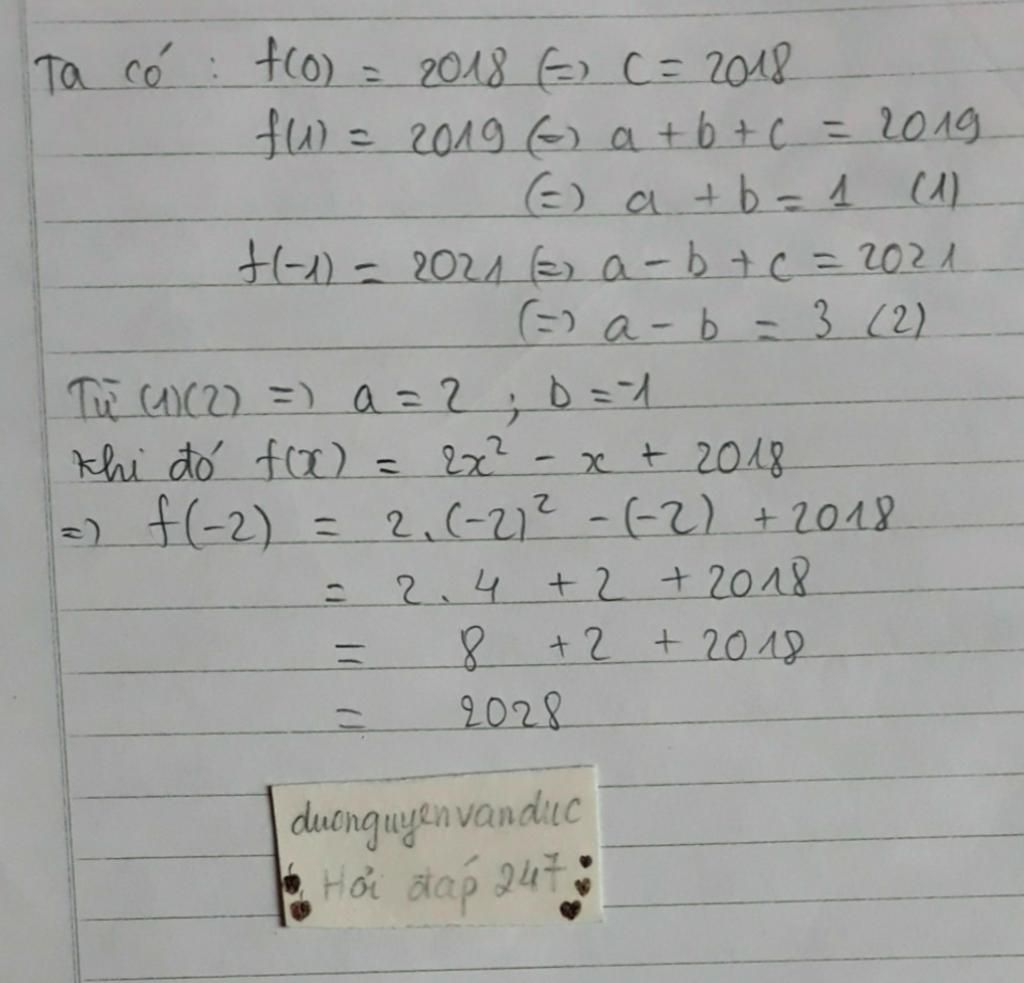 Ta có : f(0) = 2018 (=) c = 2018
f(1) = 2019 (=) a + b + c = 2019
(=) a + b = 1 (1)
f(-1) = 2021 (=) a - b + c = 2021
(=) a - b = 3 (2)
Từ (1)(2) =) a = 2 ; b = -1
Khi đó f(x) = 2x² - x + 2018
=) f(-2) = 2.(-2)² - (-2) + 2018
= 2.4 + 2 + 2018
= 8 + 2 + 2018
= 2028
duonguyenvanduc
Hỏi đáp 247